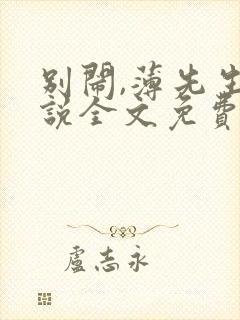 別鬧,薄先生
說全文免費
盧志永